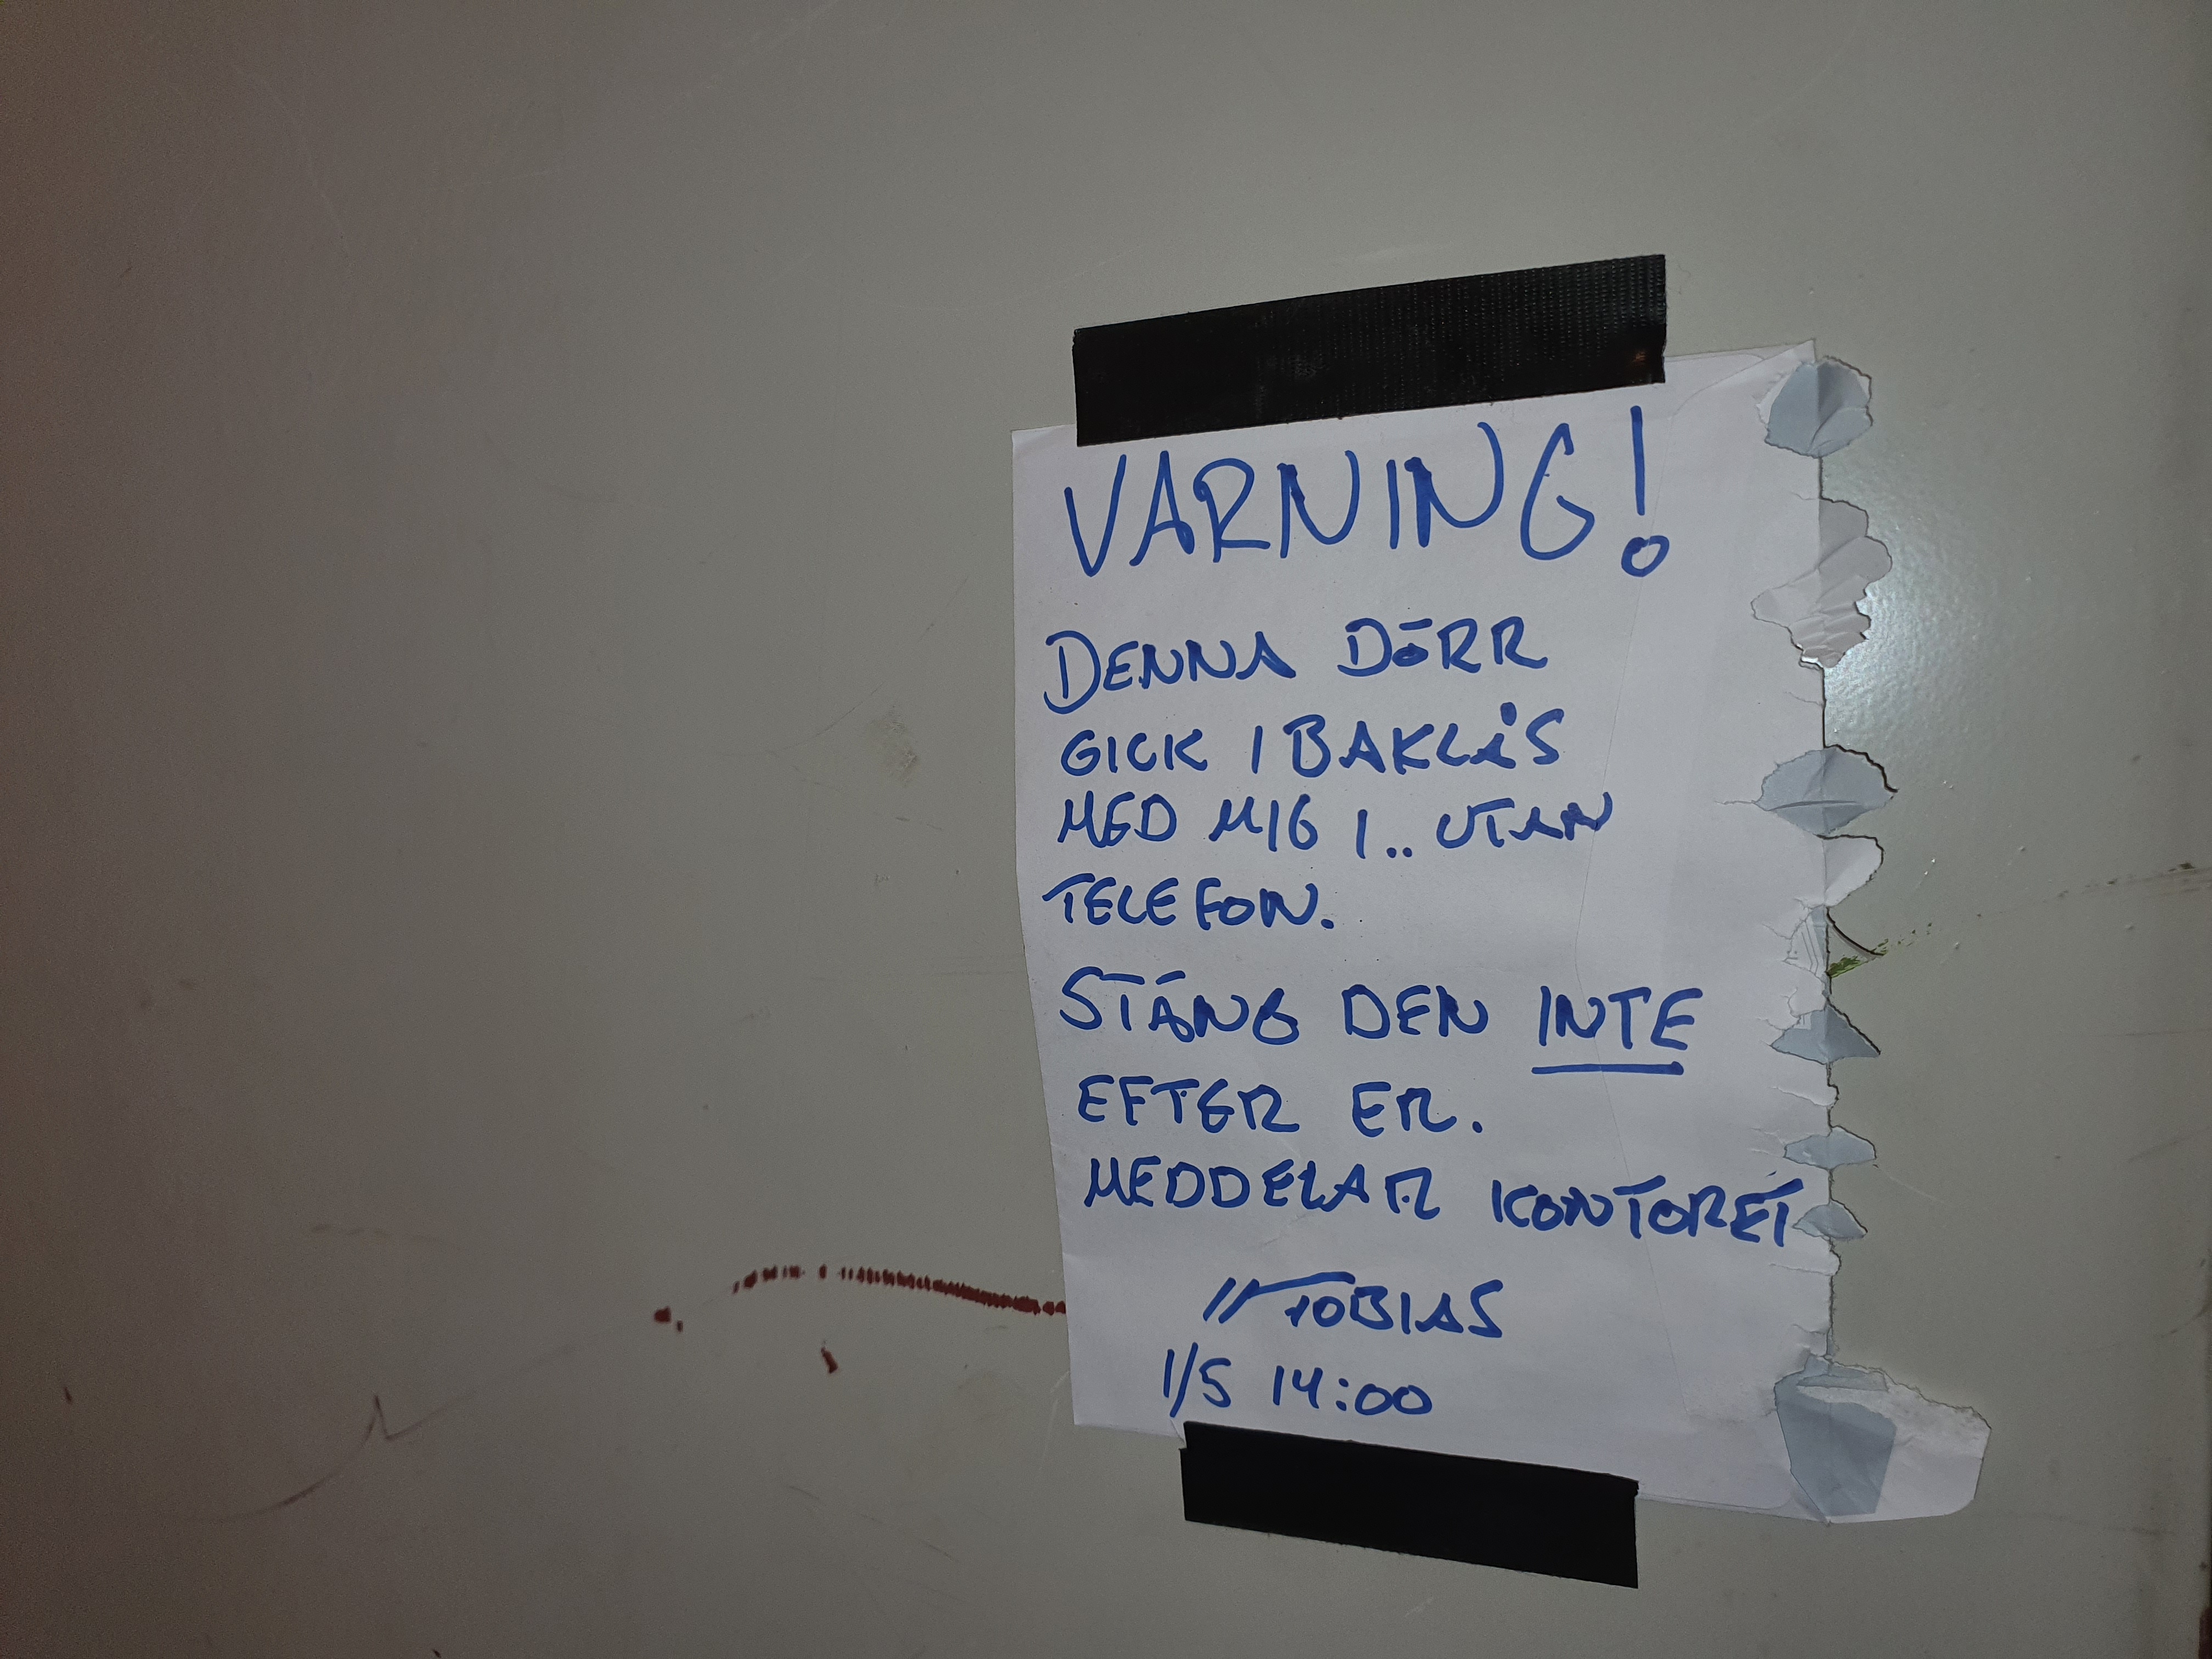 VARNING!
DENNA DÖRR
GICK I BAKLÅS
MED MIG I.. UTAN
TELEFON.
STÄNG DEN INTE
EFTER ER.
MEDDELAR KONTORET
//TOBIAS
1/5 14:00